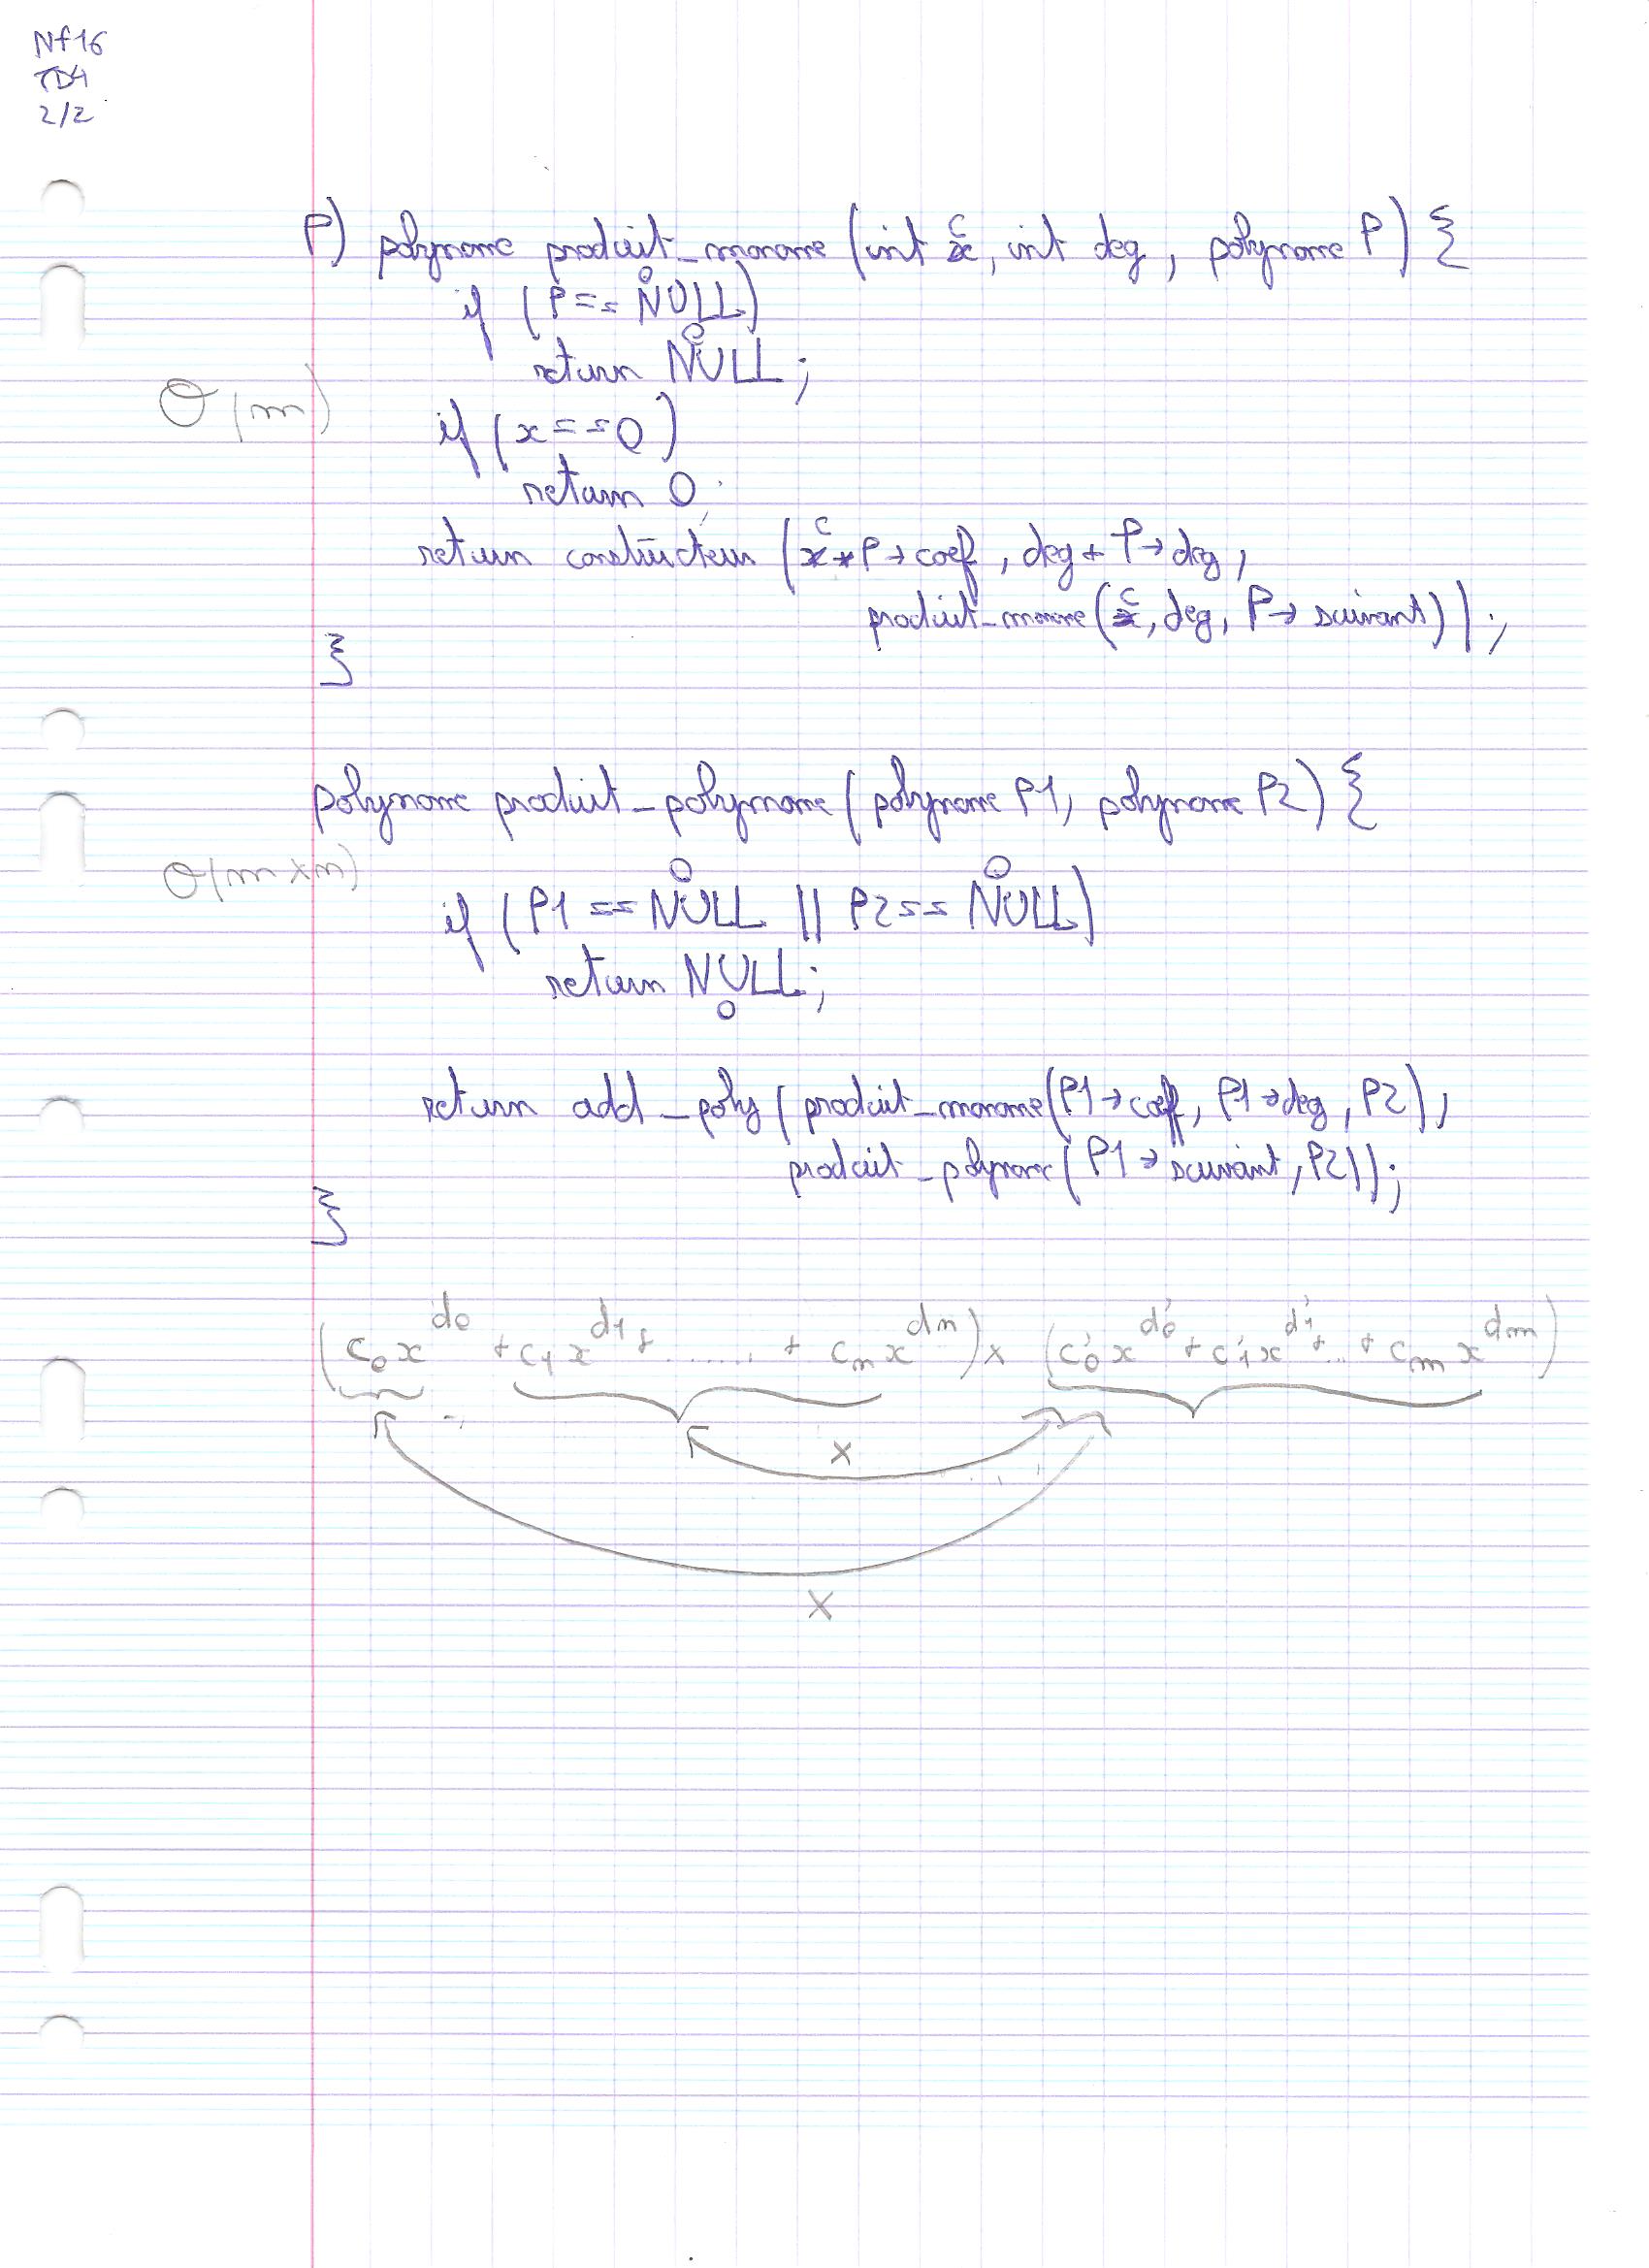 NF16
TD4
2/2
f) polynome produit_monome (int c, int deg, polynome P) {
if (P == NULL)
return NULL;
Θ(m)
if (x == 0)
return 0;
return constructeur (c * P → coef, deg + P → deg,
produit_monome (c, deg, P → suivant));
}
polynome produit_polynome (polynome P1, polynome P2) {
Θ(m × n)
if (P1 == NULL || P2 == NULL)
return NULL;
return add_poly (produit_monome (P1 → coeff, P1 → deg, P2),
produit_polynome (P1 → suivant, P2));
}
(c₀x^d₀ + c₁x^d₁ + ....... + cₙx^dₙ) × (c'₀x^d'₀ + c'₁x^d'₁ + .. + cₘx^dₘ)
×
×